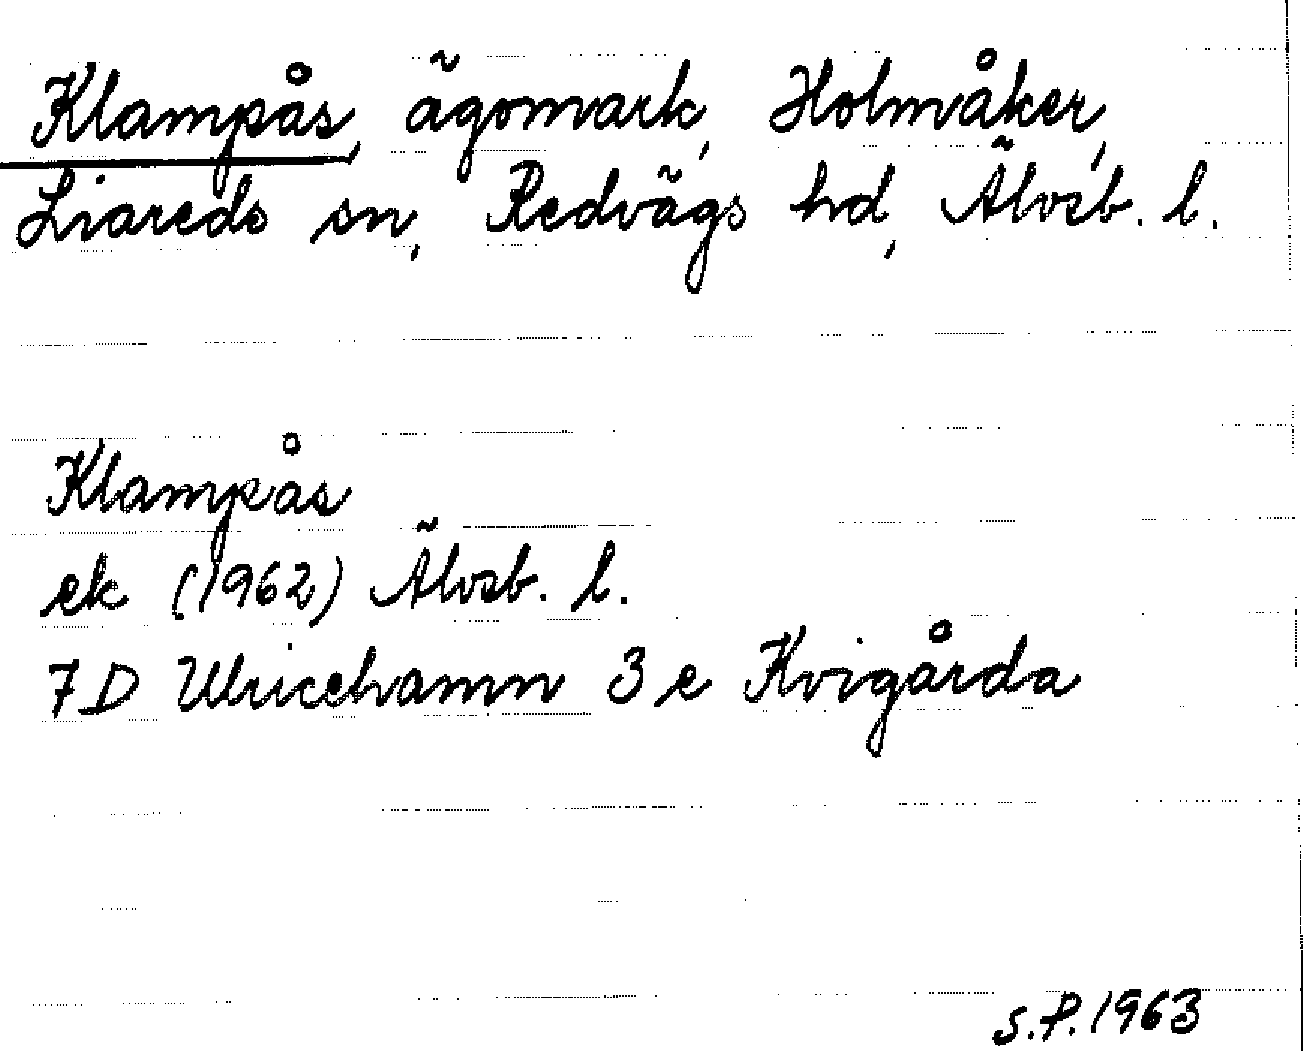 Klampås, ägomark, Holmåker,
Liareds sn, Redvägs hd, Älvsb. l.
Klampås
ek (1962) Älvsb. l.
7D Ulricehamn 3 e Kvigårda
S.P. 1963